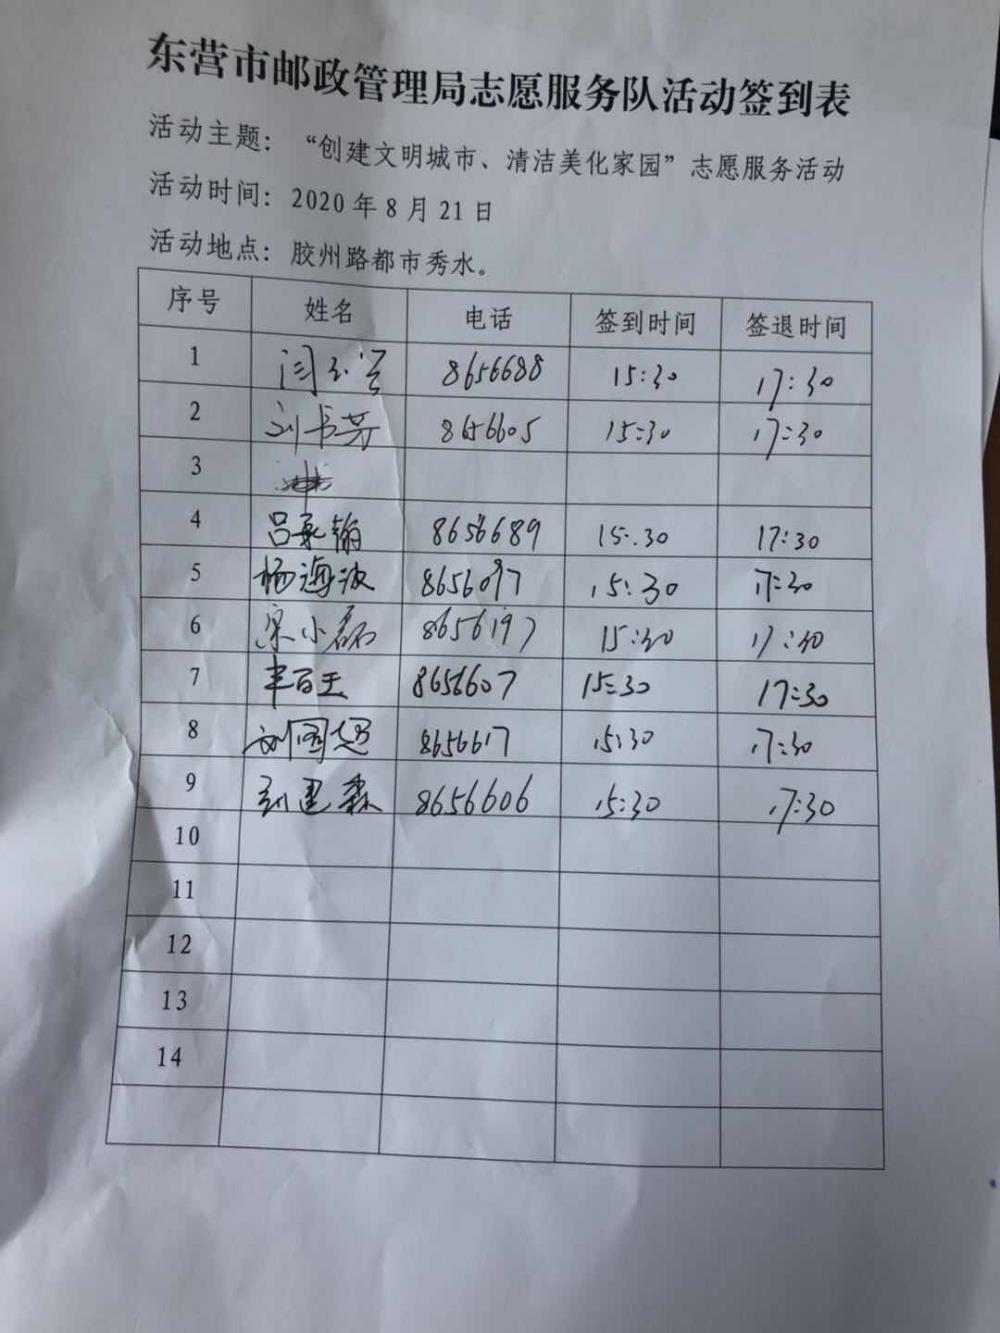 东营市邮政管理局志愿服务队活动签到表
活动主题：“创建文明城市、清洁美化家园”志愿服务活动
活动时间：2020年8月21日
活动地点：胶州路都市秀水。
序号 姓名 电话 签到时间 签退时间
1 闫 8656688 15:30 17:30
2 刘书芳 8656605 15:30 17:30
3
4 吕承翰 8656689 15:30 17:30
5 杨海波 15:30 17:30
6 宋小磊 8656197
7 百玉 8656607 15:30 17:30
8 刘国超 8656617 15:30 17:30
9 刘建森 8656606 15:30 17:30
10
11
12
13
14